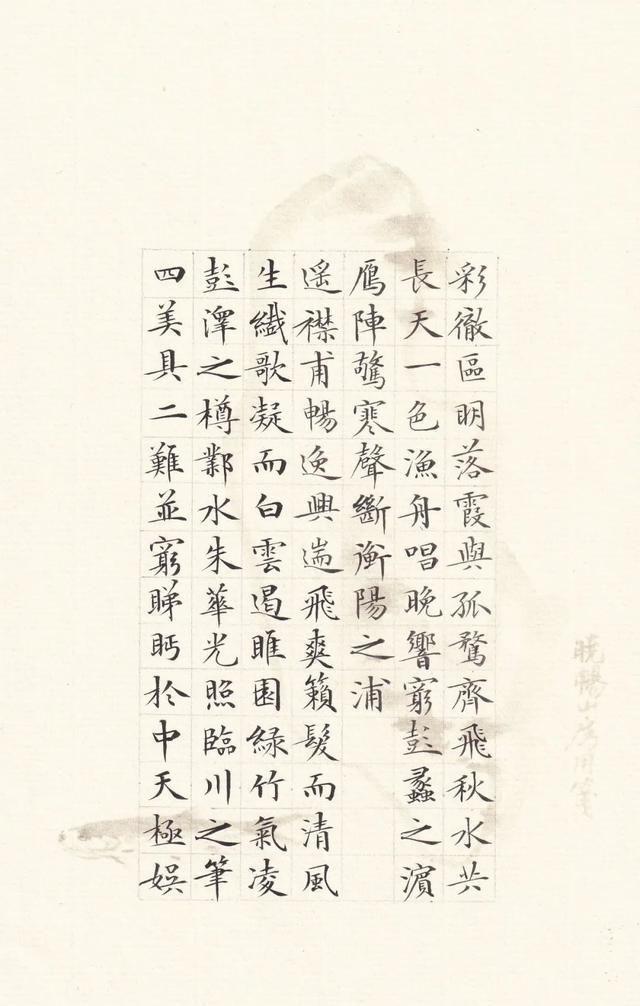 彩徹區明落霞與孤鶩齊飛秋水共
長天一色漁舟唱晚響窮彭蠡之濱
鴈陣驚寒聲斷衡陽之浦
遥襟甫暢逸興遄飛爽籟髮而清風
生纖歌凝而白雲遏睢園緑竹氣凌
彭澤之樽鄴水朱華光照臨川之筆
四美具二難並窮睇眄於中天極娱
山房用箋